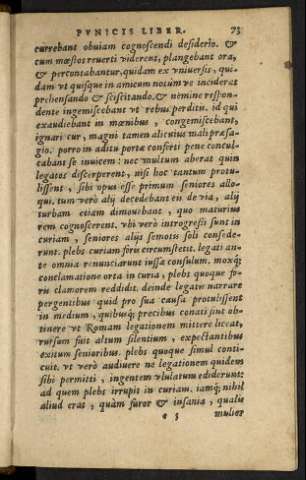 PVNICIS LIBER. 73
currebant obuiam cognoscendi desiderio. &
cum mœstos reuerti viderent, plangebant ora,
& percontabantur, quidam ex vniuersis, qui-
dam vt quisque in amicum notúm ve inciderat
prehensando & sciscitando. & nemine respon-
dente ingemiscebant vt rebus perditis. id qui
exaudiebant in mœnibus, congemiscebant,
ignari cur, magni tamen alicuius mali præsa-
gio. porro in aditu portæ conferti pene concul-
cabant se inuicem: nec multum aberat quin
legatos discerperent, nisi hoc tantum protu-
lissent, sibi opus esse primum seniores allo-
qui. tum verò alij decedebant eis de via, alij
turbam etiam dimouebant, quo maturius
rem cognoscerent. vbi verò introgressi sunt in
curiam, seniores alijs semotis soli consede-
runt. plebs curiam foris circumstetit. legati an-
te omnia renunciarunt iussa consulum. moxq́;
conclamatione orta in curia, plebs quoque fo-
ris clamorem reddidit. deinde legatis narrare
pergentibus quid pro sua causa protulissent
in medium, quibusq́; precibus conati sint ob-
tinere vt Romam legationem mittere liceat,
rursum fuit altum silentium, expectantibus
exitum senioribus. plebs quoque simul conti-
cuit. vt verò audiuere ne legationem quidem
sibi permitti, ingentem vlulatum ediderunt:
ad quem plebs irrupit in curiam. iamq́; nihil
aliud eras, quàm furor & insania, qualis
e 5 mulier